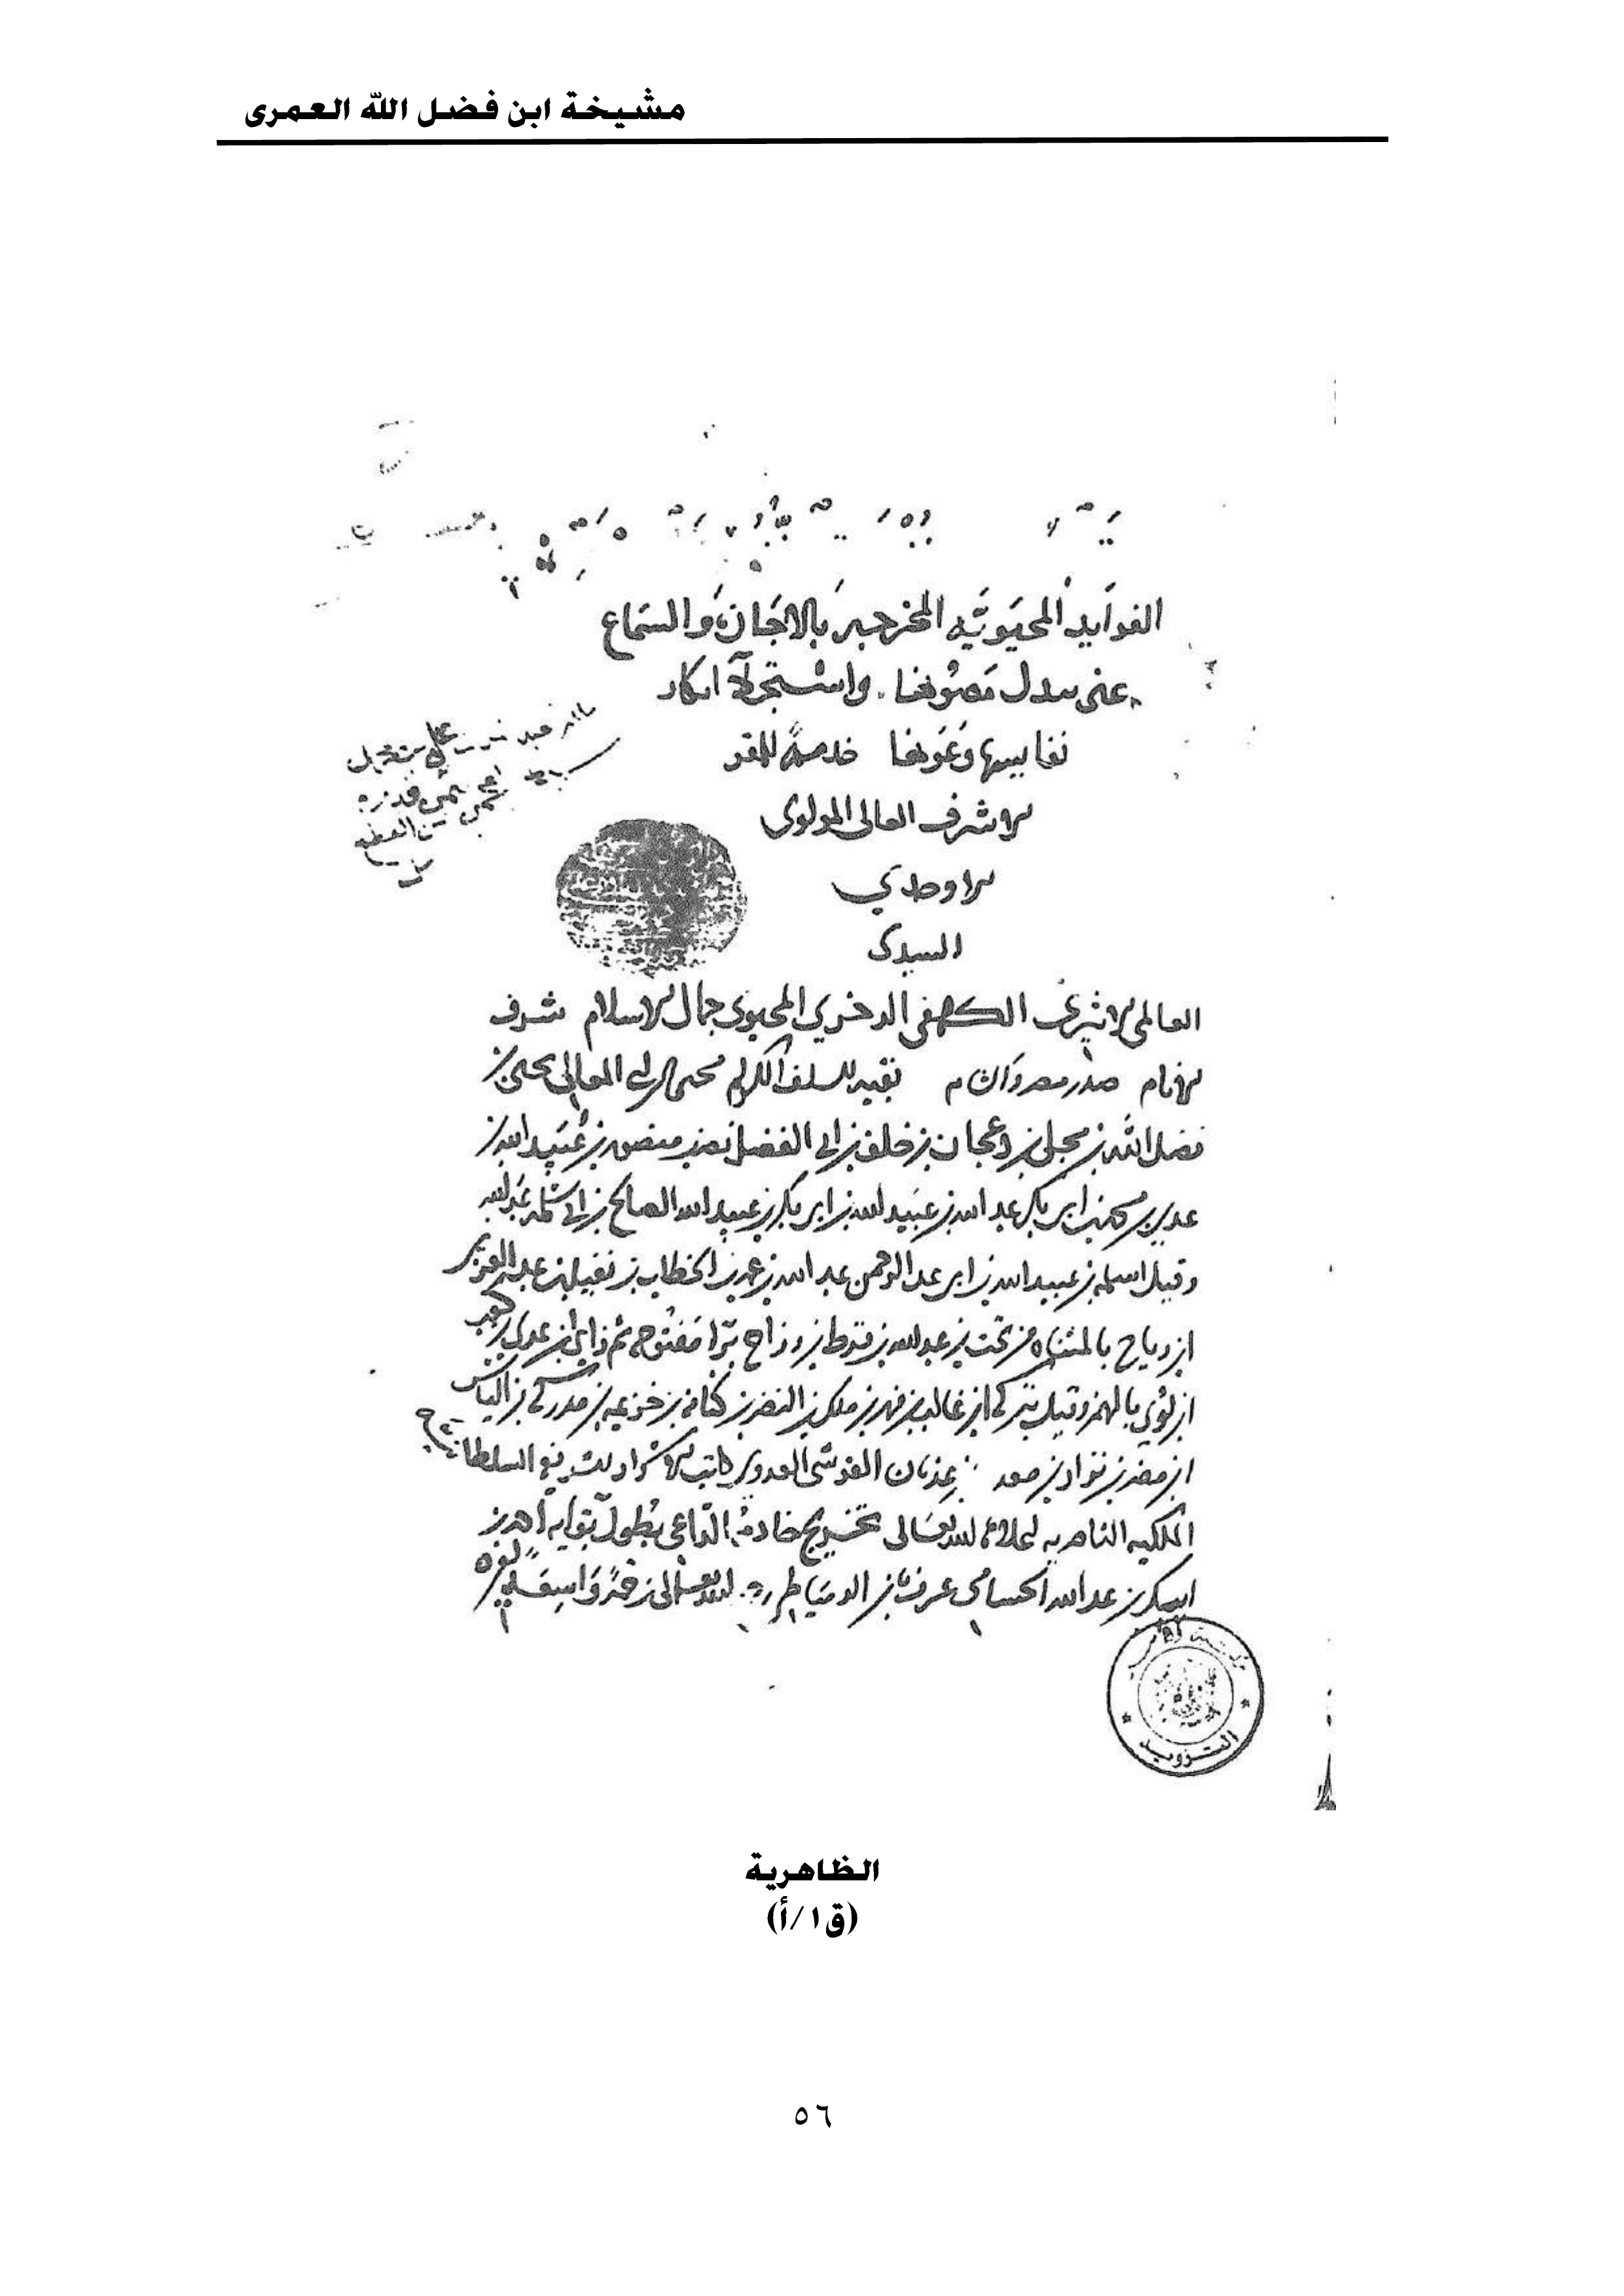 مشيخة ابن فضل الله العمرى
الفوايد المحيويه المخرجه بالاجازة والسماع
عنى ببدل مصونها واستجلا ابكار
نفايسها وعونها خدمة للمقر
الاشرف العالى المولوى
الاوحدي
السيدى
العالمى الاثيرى الكهفى الذخرى المحيوى جمال الاسلام شرف
الانام صدر مصر والشام بقيه السلف الكرام محيى الدين ابى المعالى يحيى بن
فضل الله بن مجلى بن دعجان بن خلف بن ابى الفضل نصر بن منصور بن عبيد الله بن
عدى بن محمد بن ابى بكر عبد الله بن عبيد الله بن ابى بكر بن عبيد الله الصالح بن ابى سلمه عبد الله
وقيل اسلمه بن عبيد الله بن ابى عبد الرحمن عبد الله بن عمر بن الخطاب بن نفيل بن عبد العزى
ابن رياح بالمثناه من تحت بن عبد الله بن قرط بن رزاح برا مفتوحه ثم زاى ابن عدى بن كعب
ابن لؤى بالهمز وقيل بتركه ابن غالب بن فهر بن ملك بن النضر بن كنانه بن خزيمه بن مدركه بن الياس
ابن مضر بن نزار بن معد بن عدنان القرشى العدوى كاتب الاسرار الشريفه السلطانيه
الملكيه الناصريه اعلاه الله تعالى تخريج خادمه الداعى بطول بقايه احمد بن
ايبك بن عبد الله الحسامى عرف بابن الدمياطى رحمه الله تعالى رحمة واسعة
التزويد
الظاهرية
(ق١/أ)
٥٦